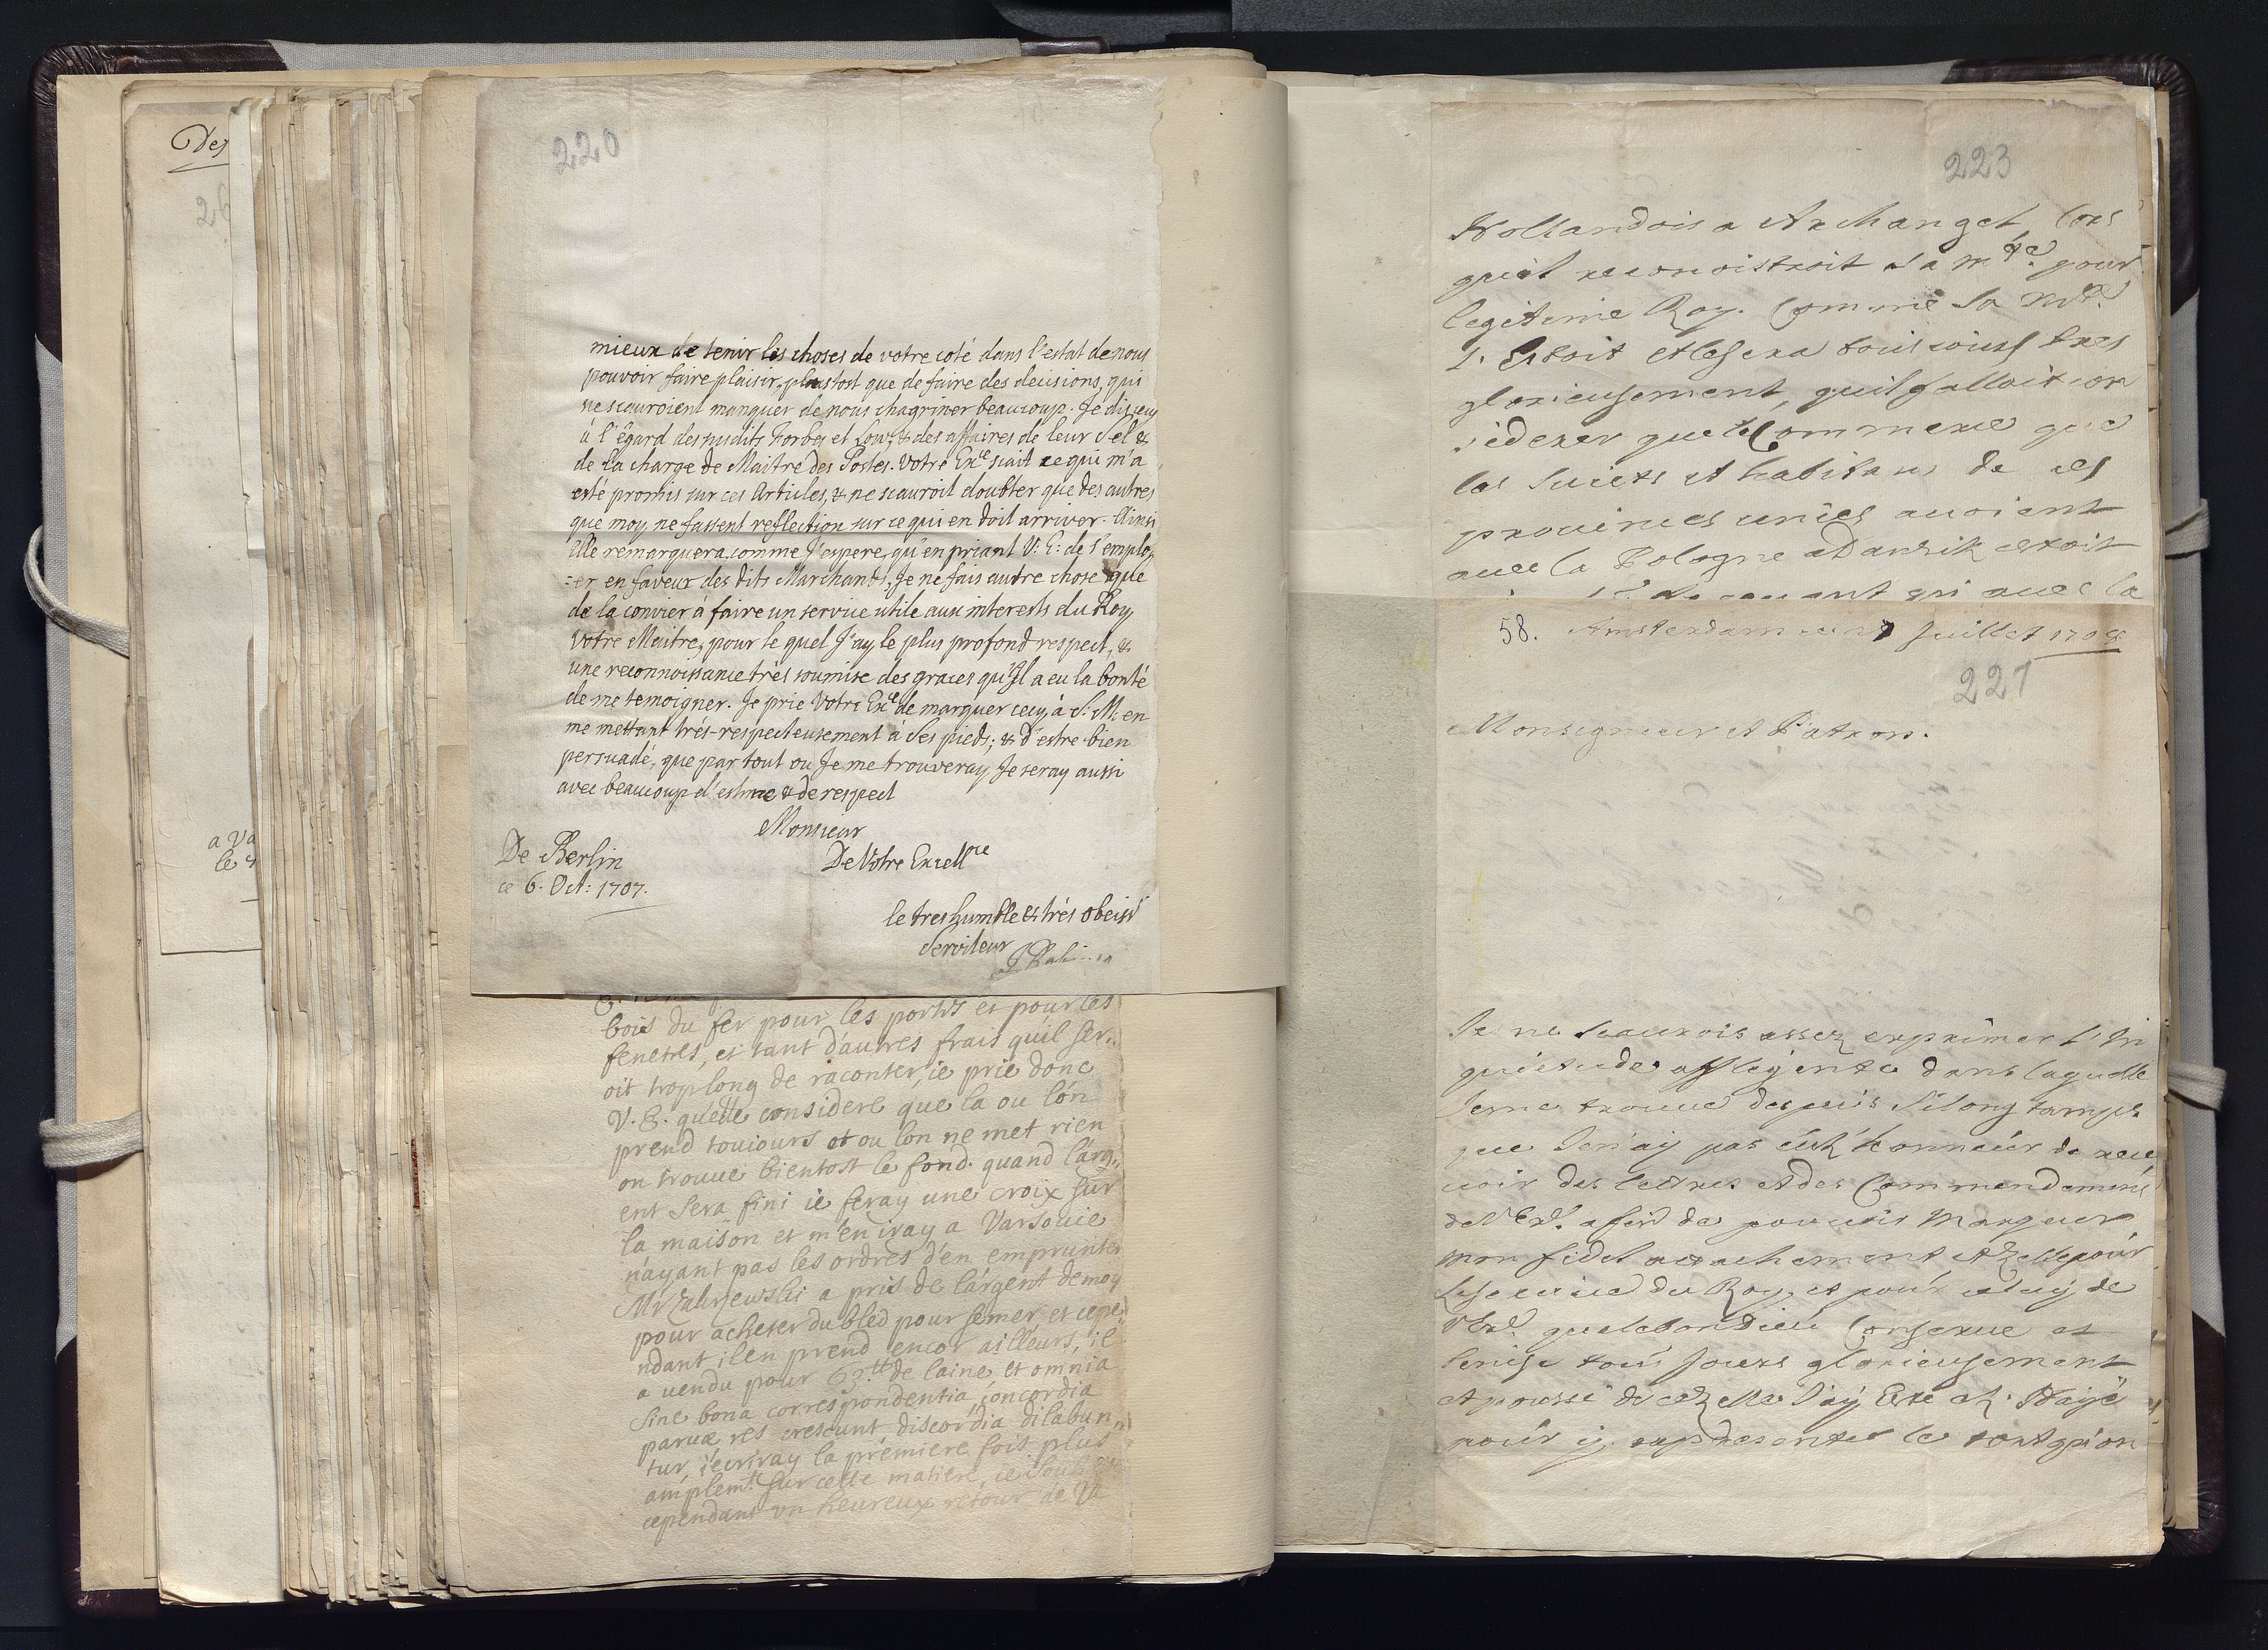 Des
26
a Va
le 4
220
mieux de tenir les choses de votre coté dans l'estat de nous
pouvoir faire plaisir, plustost que de faire des decisions, qui
ne scauroient manquer de nous chagriner beaucoup. Je dis cecy
à l'êgard des susdits Forbes et Low, & des affaires de leur Sel &
de la charge de Maitre des Postes. Votre Exce scait ce qui m'a
esté promis sur ces Articles, & ne scauroit doubter que des autres
que moy ne fassent reflection sur ce qui en doit arriver. Ainsi
Elle remarquera comme J'espere, qu'en priant V: E: de s'employ
=er en faveur des dits Marchands, Je ne fais autre chose que
de la convier à faire un service utile aux interests du Roy
votre Maitre, pour le quel J'ay le plus profond respect, &
une reconnoissance trés soumise des graces qu'Il a eu la bonté
de me temoigner. Je prie Votre Exce de marquer cecy à S: M: en
me mettant trés-respecteusement à Ses pieds; & d'estre bien
persuadé, que par tout ou Je me trouveray Je seray aussi
avec beaucoup d'estime & de respect
Monsieur
De Votre Excellce
De Berlin
ce 6. Oct: 1707.
le tres humble & trés obeisst
Serviteur
bois du fer pour les portes et pour les
fenetres, et tant dautres frais quil ser..
oit trop long de raconter, ie prie donc
V. E. quelle considere que la ou lón
prend touiours et ou lon ne met rien
on trouve bientost le fond. quand lárg..
ent sera fini ie feray une croix sur
la maison et m'en iray a Varsovie
n'ayant pas les ordres d'en emprunter
Mr Zakrzewski a pris de lárgent de moy
pour acheter du bled pour semer, et cepe..
ndant il en prend encor ailleurs, il
a vendu pour 63 tt de laine et omnia
sine bona correspondentia, concordia
parvæ res crescunt discordia dilabun..
tur, iécriray la prémiere fois plus
amplemt sur cette matiere, ie souh
cependant vn heureux retour de V
223
Hollandois a Archangel lors
quil reconoistroit sa Mté pour
legitime Roy. Comme sa Mté
l'Estoit et le sera tousiours tres
glorieusement, quil falloit con
siderer que le Commerce que
les suiets et habitans de ces
provinces unies avoient
avec la Pologne a Danzik estoit
qui avec la
58. Amsterdam ce 27 Juillet 1708
221
Monseigneur et Patron.
Je ne scaurois assez exprimer l'In
quietude affligente dans laquelle
Jeme trouve depuis si long tamps
que Jen'ay pas eu l'honneur de rece
voir des lettres et des Commendemens
de V Exce. afin de pouvois marquer
mon fidel attachement et zelle pour
leservice du Roy, et pour celuy de
V Exce. que le bon Dieu Conserve et
benise tous Jours glorieusement
et poussé de ce zelle J'ay Esté a la Haye
pour y representer le tort qu'on